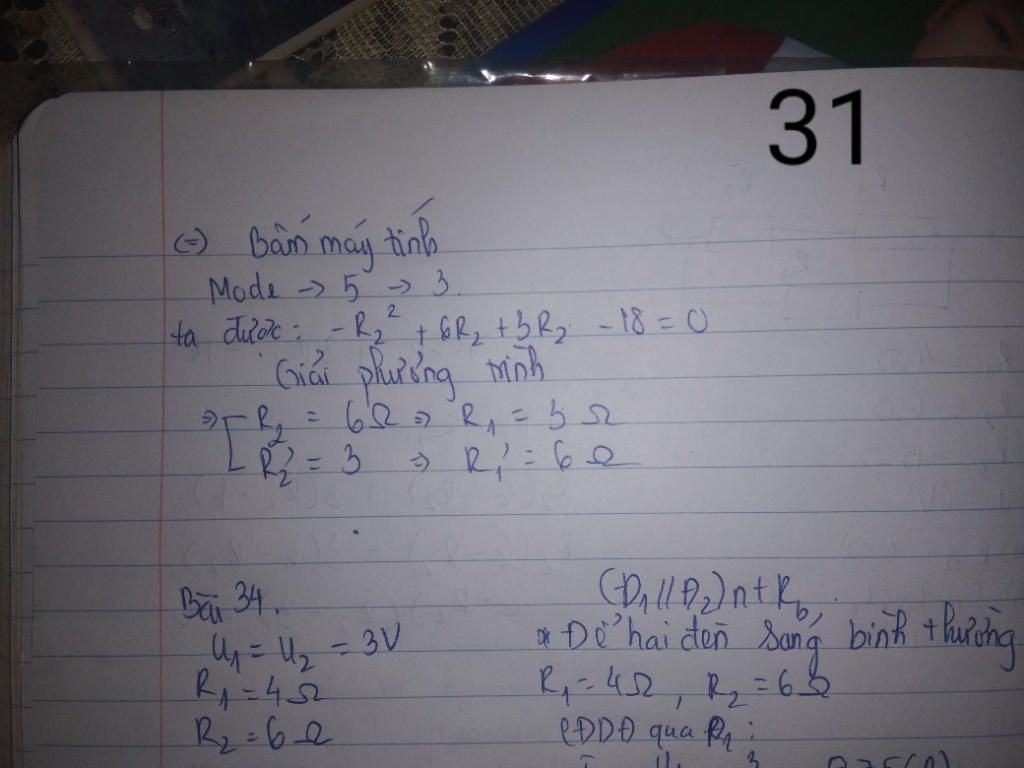 31
(=) Bấm máy tính
Mode → 5 → 3.
ta được: -R₂² + 6R₂ + 3R₂ - 18 = 0
Giải phương trình
⇒ R₂ = 6Ω ⇒ R₁ = 3Ω
R₂' = 3 ⇒ R₁' = 6Ω
Bài 34.
U₁ = U₂ = 3V
R₁ = 4Ω
R₂ = 6Ω
(Đ₁ // Đ₂) nt Rb.
* Để hai đèn sáng bình thường
R₁ = 4Ω, R₂ = 6Ω
CĐDĐ qua R₁: